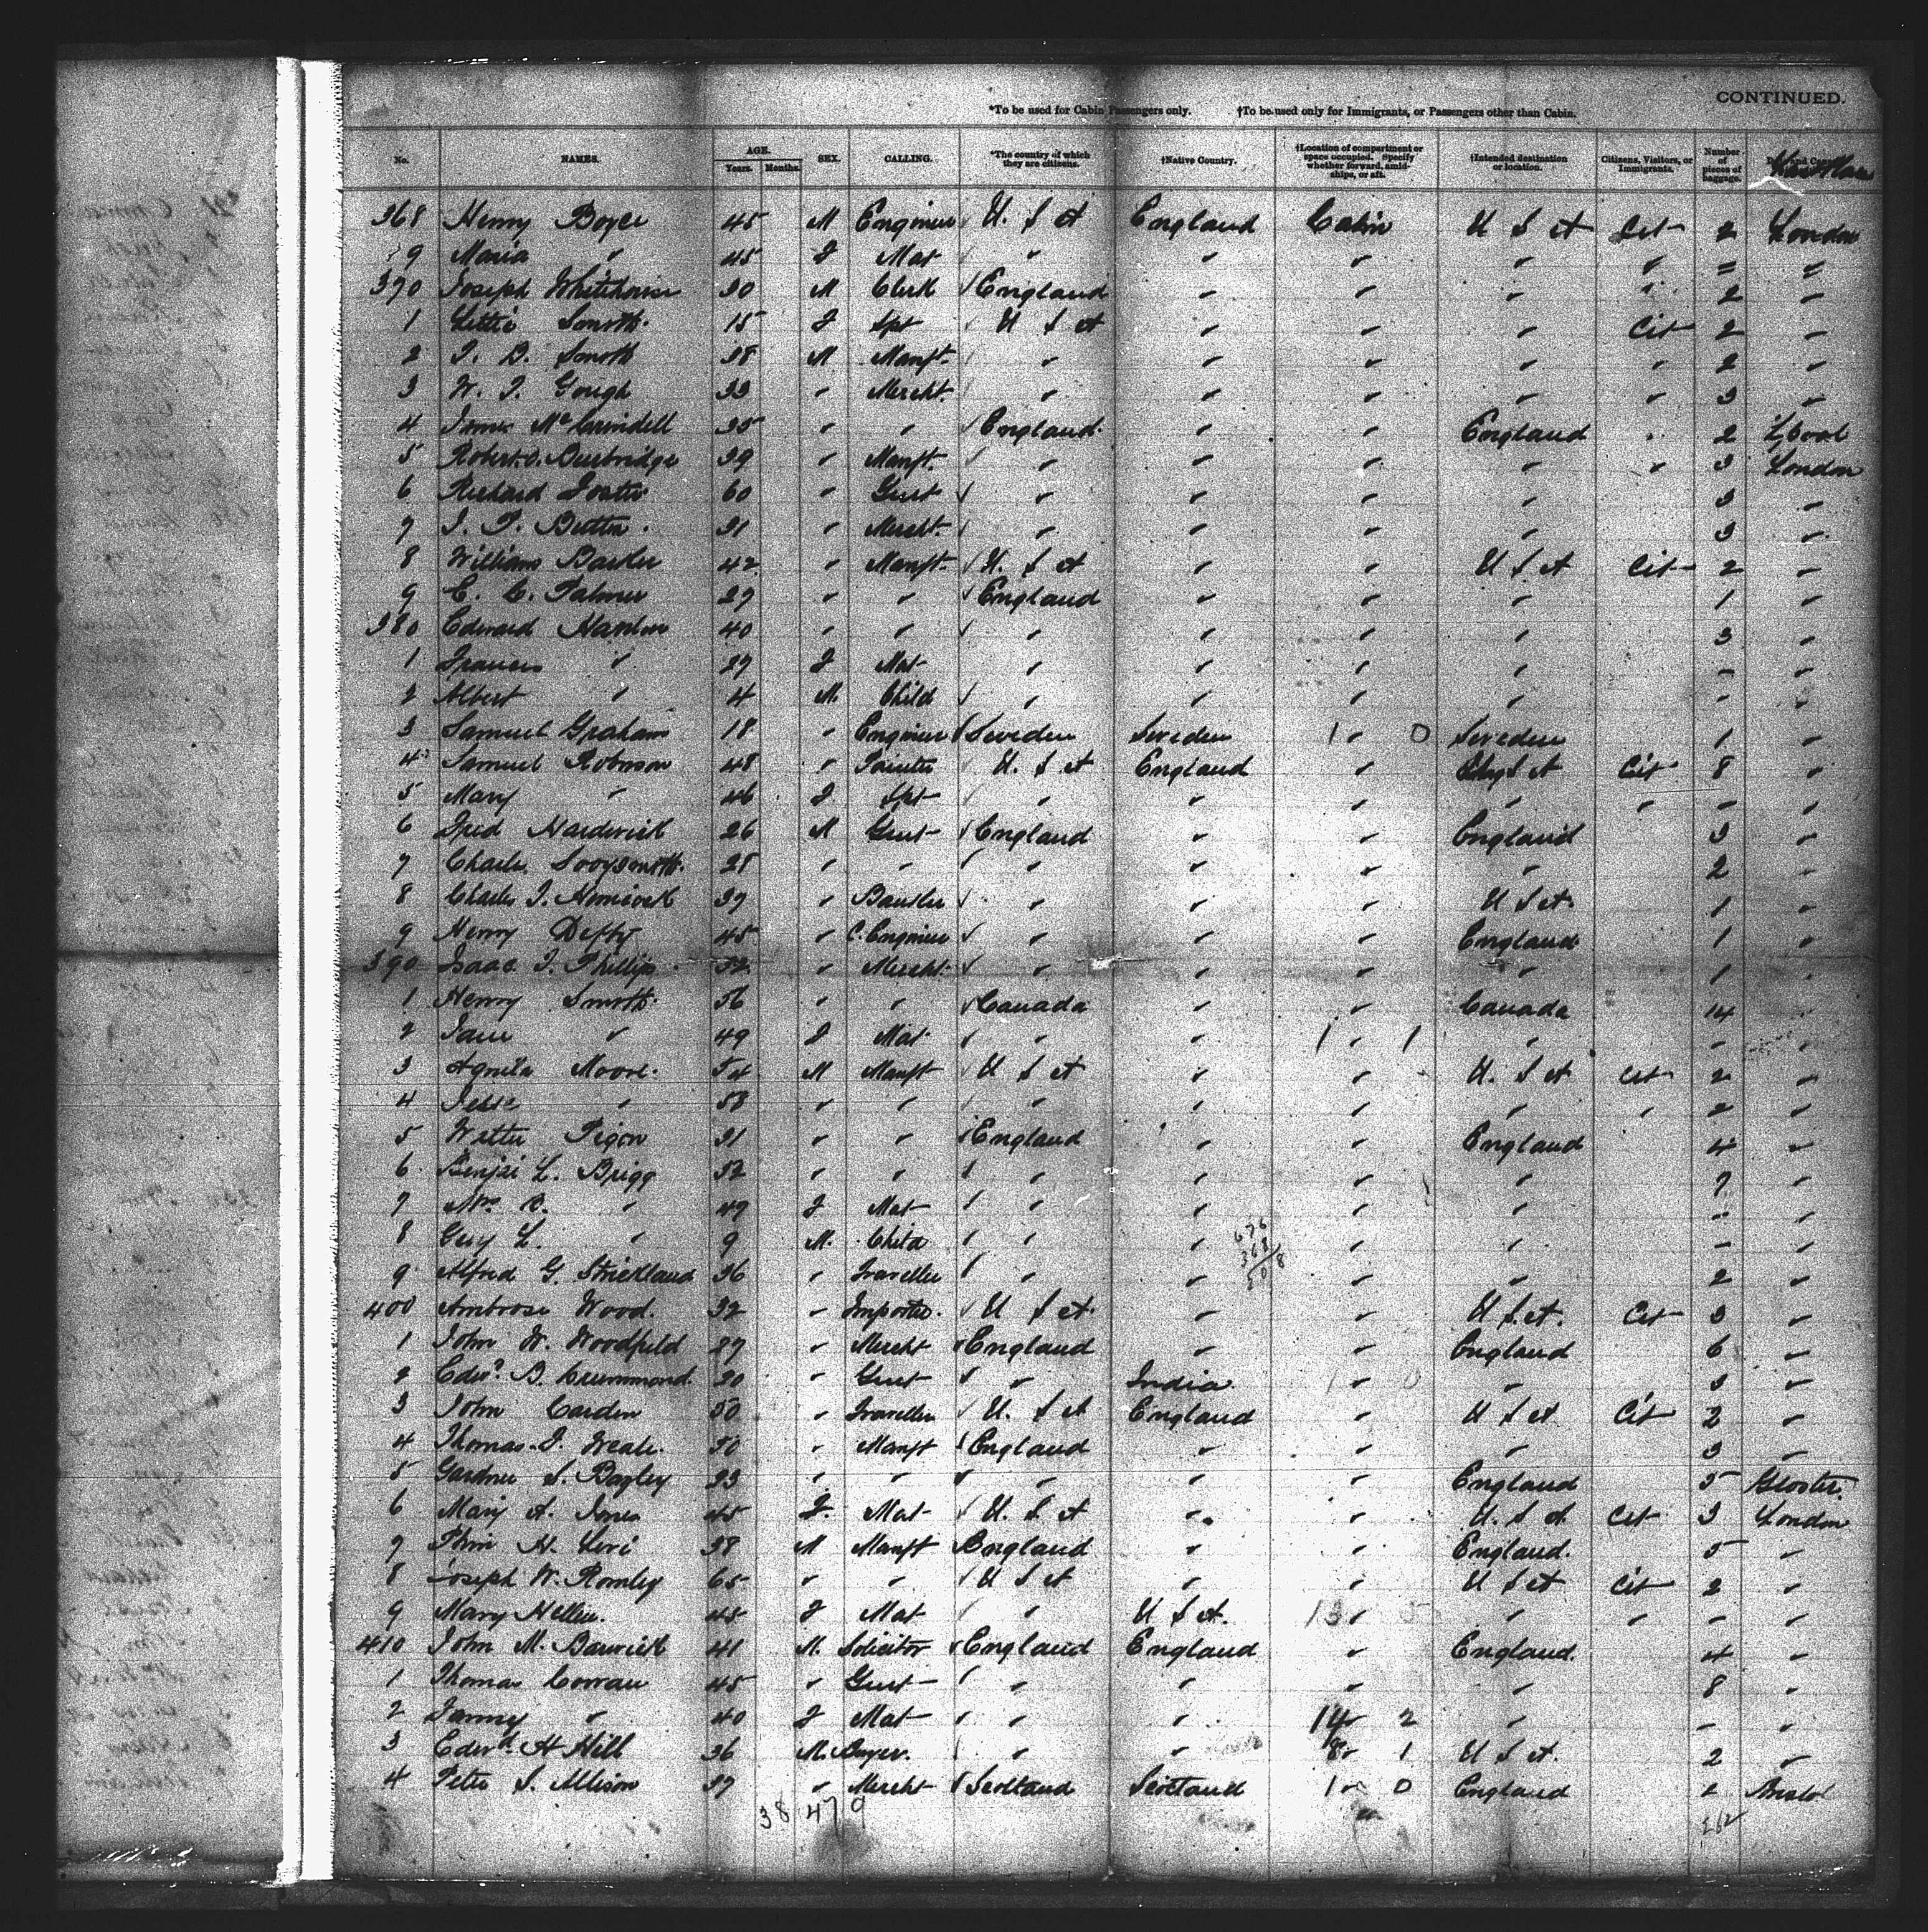 CONTINUED.
*To be used for Cabin Passengers only. †To be used only for Immigrants, or Passengers other than Cabin.
No. NAMES. AGE. Years. Months. SEX. CALLING. *The country of which they are citizens. †Native Country. †Location of compartment or space occupied. Specify whether forward, amidships, or aft. †Intended destination or location. Citizens, Visitors, or Immigrants. Number of pieces of baggage.
368 Henry Boyce 45 M Engineer U. S A England Cabin U S A Cit 2 London
9 Maria " 45 F Mat " " " " " = =
370 Joseph Whitehouse 30 M Clerk England " " " " 2 "
1 Lettie Smith 15 F Spt U S A " " " Cit 2 "
2 J. B. Smith 38 M Manft " " " " " 2 "
3 W. J. Gough 33 " Mercht. " " " " " 3 "
4 James Mc 35 " " England " " England " 2 L'Pool
5 Robert O. Burbridge 39 " Manft. " " " " " 3 London
6 Richard Foster 60 " Gent " " " " 3 "
7 J. P. 31 " Mercht. " " " " 3 "
8 William Barker 42 " Manft. U. S A " " U S A Cit 2 "
9 E. C. Palmer 27 " " England " " " 1 "
380 Edward Hanlon 40 " " " " " " 3 "
1 Frances " 27 F Mat " " " " - "
2 Albert " 4 M. Child " " " " - "
3 Samuel Graham 18 " Engineer Sweden Sweden 1 " 0 Sweden 1 "
4 Samuel Robinson 48 " Painter U. S. A England " U S A Cit 8 "
5 Mary " 46 F Spt " " " " " - "
6 Fred Hardwick 26 M Gent England " " England 3 "
7 Charles 28 " " " " " " 2 "
8 Charles J. 39 " Banker " " " U S A 1 "
9 Henry Defty 45 " C. Engineer " " " England 1 "
390 Isaac J. Phillips 52 " Mercht. " " " " 1 "
1 Henry Smith 56 " " Canada " " Canada 14 "
2 Jane " 49 F Mat " " 1 " 1 " - "
3 Moore 54 M Manft U S A " " U. S A Cit 2 "
4 Jesse " 58 " " " " " " " 2 "
5 Pigon 31 " " England " " England 4 "
6 Benjn L. Brigg 52 " " " " " " 7 "
7 Mrs B. " 49 F Mat " " " " - "
8 Guy L. " 9 M. Child " " " " - "
676
368
508
9 Alfred G. Strickland 36 " Traveller " " " " 2 "
400 Ambrose Wood 32 " Importer. U S A " " U S. A. Cit 3 "
1 John W. Woodfield 27 " Mercht England " " England 6 "
2 Edwd. B. Crummond 30 " Gent " India 1 " 0 " 3 "
3 John Carden 50 " Traveller U. S A England " U S A Cit 2 "
4 Thomas J. 50 " Manft England " " " 3 "
5 Gardner S. Bagley 23 " " " " " England 5 Gloster.
6 Mary A. Jones 45 F. Mat U. S A " " U. S A. Cit 3 London
7 H. Levi 38 M Manft England " " England. 5 "
8 Joseph W. Romley 65 " " U S A " " U S A Cit 2 "
9 Mary Hellier 45 F Mat " U S A. 13 " 5 " " - "
410 John M. Barwick 41 M. Solicitor England England " England. 4 "
1 Thomas Cowan 45 " Gent " " " " 8 "
2 Fanny " 40 F Mat " " 14 " 2 " - "
3 Edwd. H Hill 36 M. Buyer. " " 8 " 1 U S A. 2 "
4 Peter S. Allison 37 " Mercht Scotland Scotland 1 " 0 England 2 Bristol
38 47 9